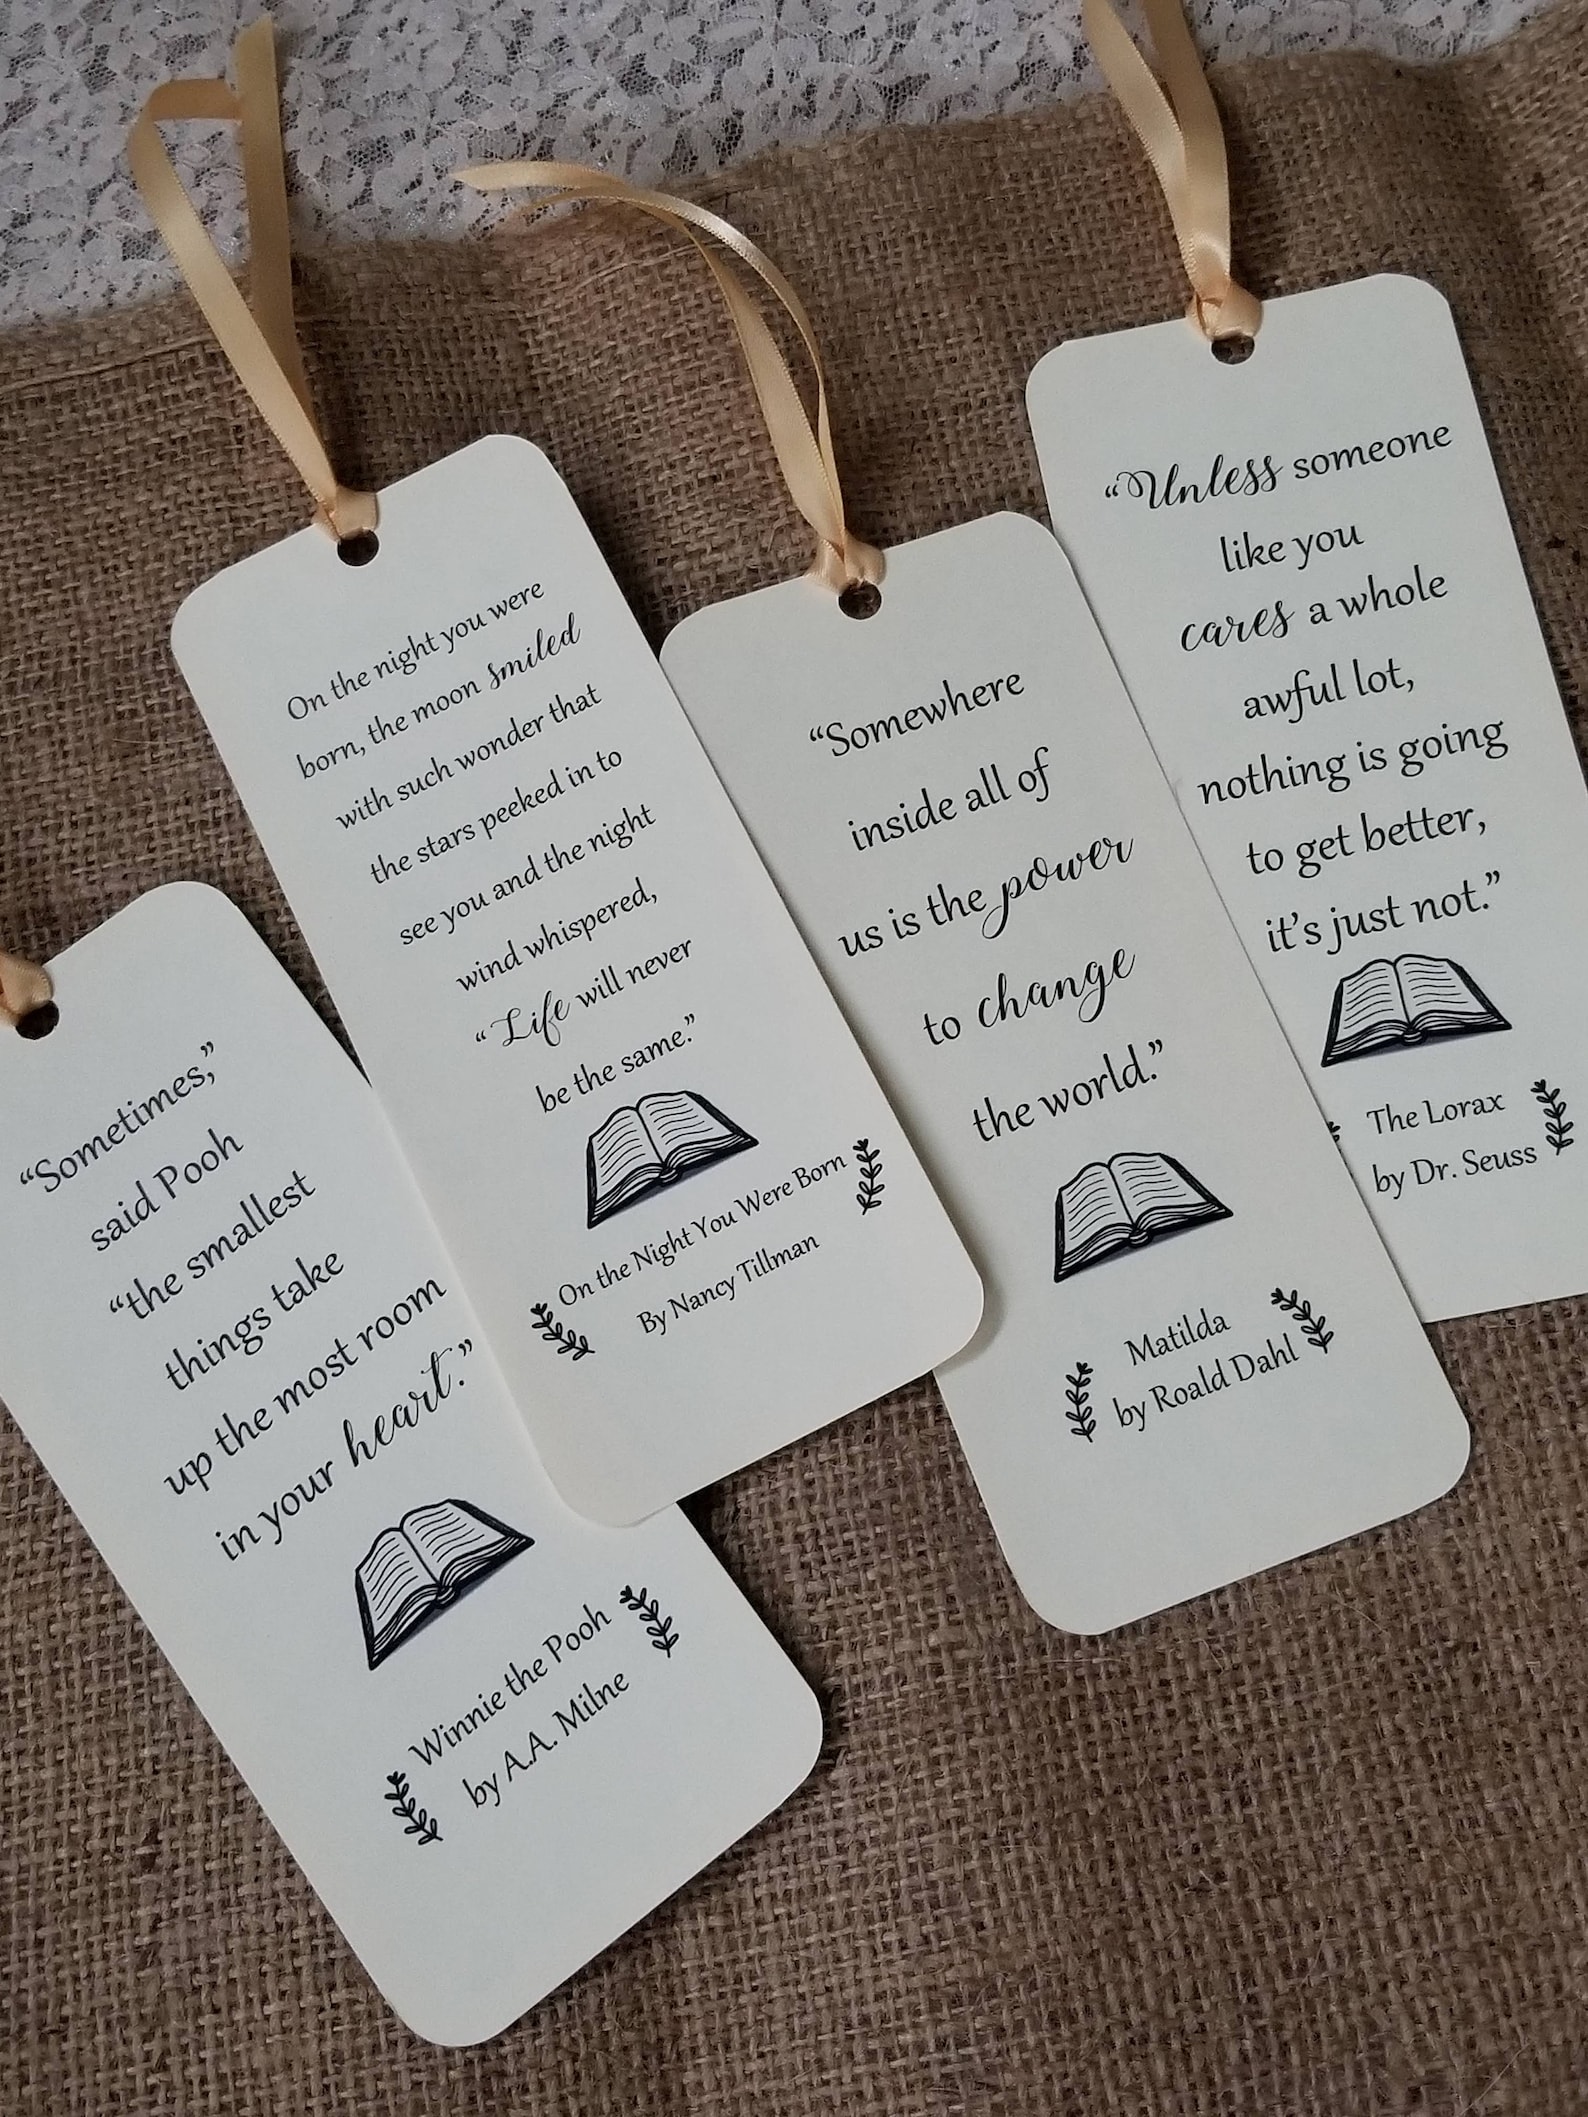 “Sometimes,”
said Pooh
“the smallest
things take
up the most room
in your heart.”
Winnie the Pooh
by A.A. Milne
On the night you were
born, the moon smiled
with such wonder that
the stars peeked in to
see you and the night
wind whispered,
“Life will never
be the same.”
On the Night You Were Born
By Nancy Tillman
“Somewhere
inside all of
us is the power
to change
the world.”
Matilda
by Roald Dahl
“Unless someone
like you
cares a whole
awful lot,
nothing is going
to get better,
it’s just not.”
The Lorax
by Dr. Seuss